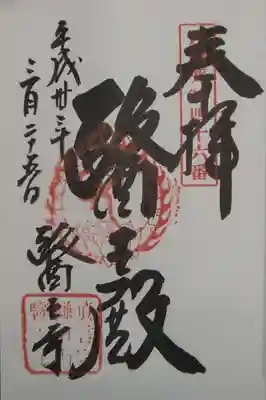 奉拝
醫王殿
平成廿三年
三月二十五日
醫王寺